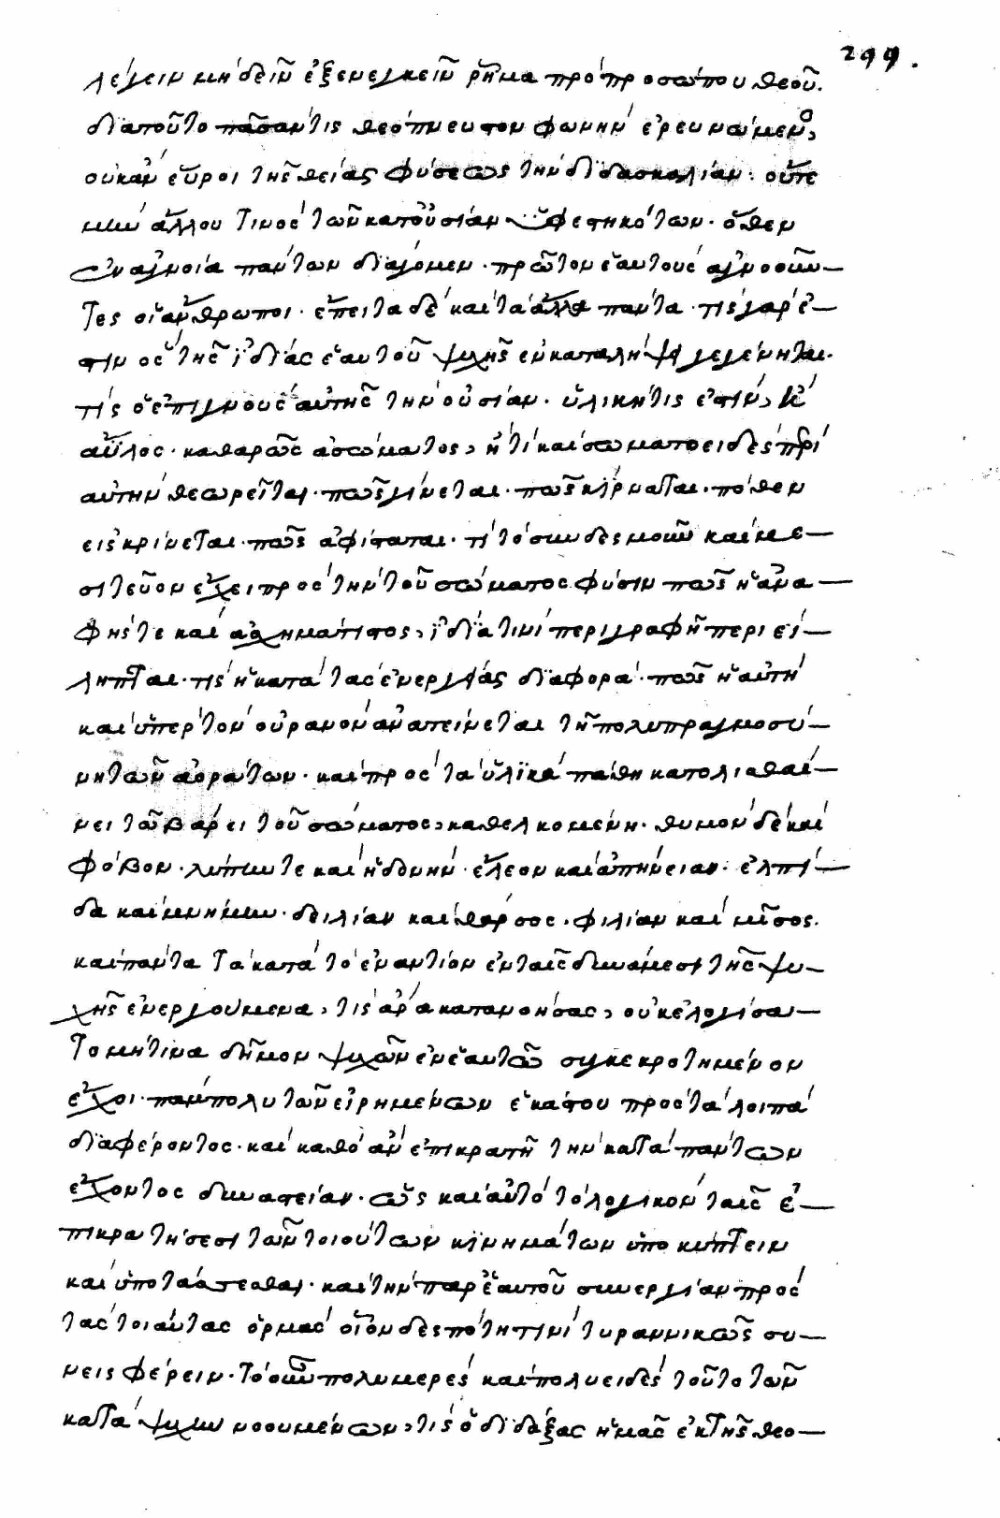 299.
λέγειν μηδεῖν ἐξενεγκεῖν ῥῆμα πρὸ προσώπου θεοῦ.
διατοῦτο πᾶσαν τὶς θεόπνευστον φωνὴν ἐρευνώμενος,
οὐκἂν εὕροι τῆς θείας φύσεως τὴν διδασκαλίαν. οὔτε
μὴν ἄλλου τινος τῶν κατοὐσίαν ὑφεστηκότων. ὅθεν
ἐν ἀγνοία πάντων διάγομεν. πρῶτον ἑαυτοὺς ἀγνοοῦν-
τες οἱ ἄνθρωποι. ἔπειτα δὲ καὶ τὰ ἄλλα πάντα. τίς γάρ ἐ-
στιν ὃς τῆς ἰδίας ἑαυτοῦ ψυχῆς ἐν καταλήψει γεγένηται.
τίς ὁ ἐπιγνοὺς αὐτῆς τὴν οὐσίαν. ὑλική τις ἐστὶν, ἢ
ἄϋλος. καθαρῶς ἀσώματος, ἤ τι καὶ σωματοειδὲς περὶ
αὐτὴν θεωρεῖται. πῶς γίνεται. πῶς κίρναται. πόθεν
εἰσκρίνεται. πῶς ἀφίσταται. τί τὸ συνδεσμοῦν καὶ με-
σιτεῦον ἔχει προς τὴν τοῦ σώματος φύσιν πῶς ἡ ἀνα-
φής τε καὶ ἀσχημάτιστος, ἰδία τινὶ περιγραφῆ περιεί-
ληπται. τίς ἡ κατὰ τὰς ἐνεργείας διαφορά. πῶς ἡ αὐτὴ
καὶ ὑπερ τὸν οὐρανὸν ἀνατείνεται τῆ πολυπραγμοσύ-
νη τῶν ἀοράτων. καὶ προς τὰ ὑλικὰ πάθη κατολισθαί-
νει τῶ βάρει τοῦ σώματος, καθελκομένη. θυμὸν δὲ καὶ
φόβον. λύπην τε καὶ ἡδονὴν. ἔλεον καὶ ἀπήνειαν. ἐλπί-
δα καὶ μνήμην. δειλίαν καὶ θάρσος. φιλίαν καὶ μῖσος.
καὶ πάντα τὰ κατὰ τὸ ἐναντίον ἐν ταῖς δυνάμεσι τῆς ψυ-
χῆς ἐνεργούμενα, τίς ἄρα κατανοήσας, οὐκ ἐλογίσα-
το μή τινα δῆμον ψυχῶν ἐν ἑαυτῶ συγκεκροτημένον
ἔχοι. πάμπολυ τῶν εἰρημένων ἑκάστου προς τὰ λοιπὰ
διαφέροντος. καὶ καθὸ ἂν ἐπικρατῆ τὴν κατὰ πάντων
ἔχοντος δυναστείαν. ὡς καὶ αὐτὸ τὸ λογικὸν ταῖς ἐ-
πικρατήσεσι τῶν τοιούτων κινημάτων ὑποκύπτειν
καὶ ὑποτάσσεσθαι. καὶ τὴν παρ ἑαυτοῦ συνεργίαν προς
τὰς τοιαύτας ὁρμὰς οἷον δεσπότη τινὶ τυραννικῶς συ-
νεισφέρειν. τὸ οὖν πολυμερὲς καὶ πολυειδὲς τοῦτο τῶν
κατὰ ψυχὴν νοουμένων, τίς ὁ διδάξας ἡμᾶς ἐκ τῆς θεο-